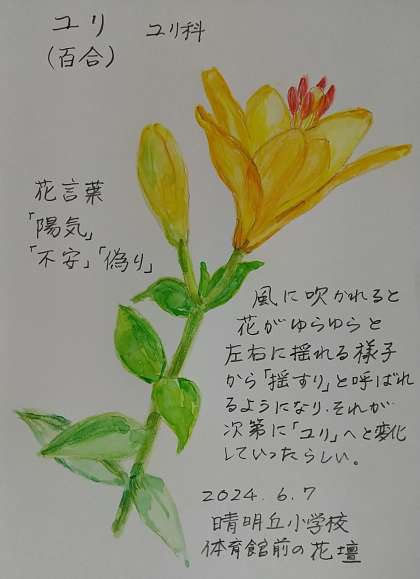 ユリ ユリ科
(百合)
花言葉
「陽気」
「不安」「偽り」
風に吹かれると
花がゆらゆらと
左右に揺れる様子
から「揺すり」と呼ばれ
るようになり、それが
次第に「ユリ」へと変化
していったらしい。
2024.6.7
晴明丘小学校
体育館前の花壇